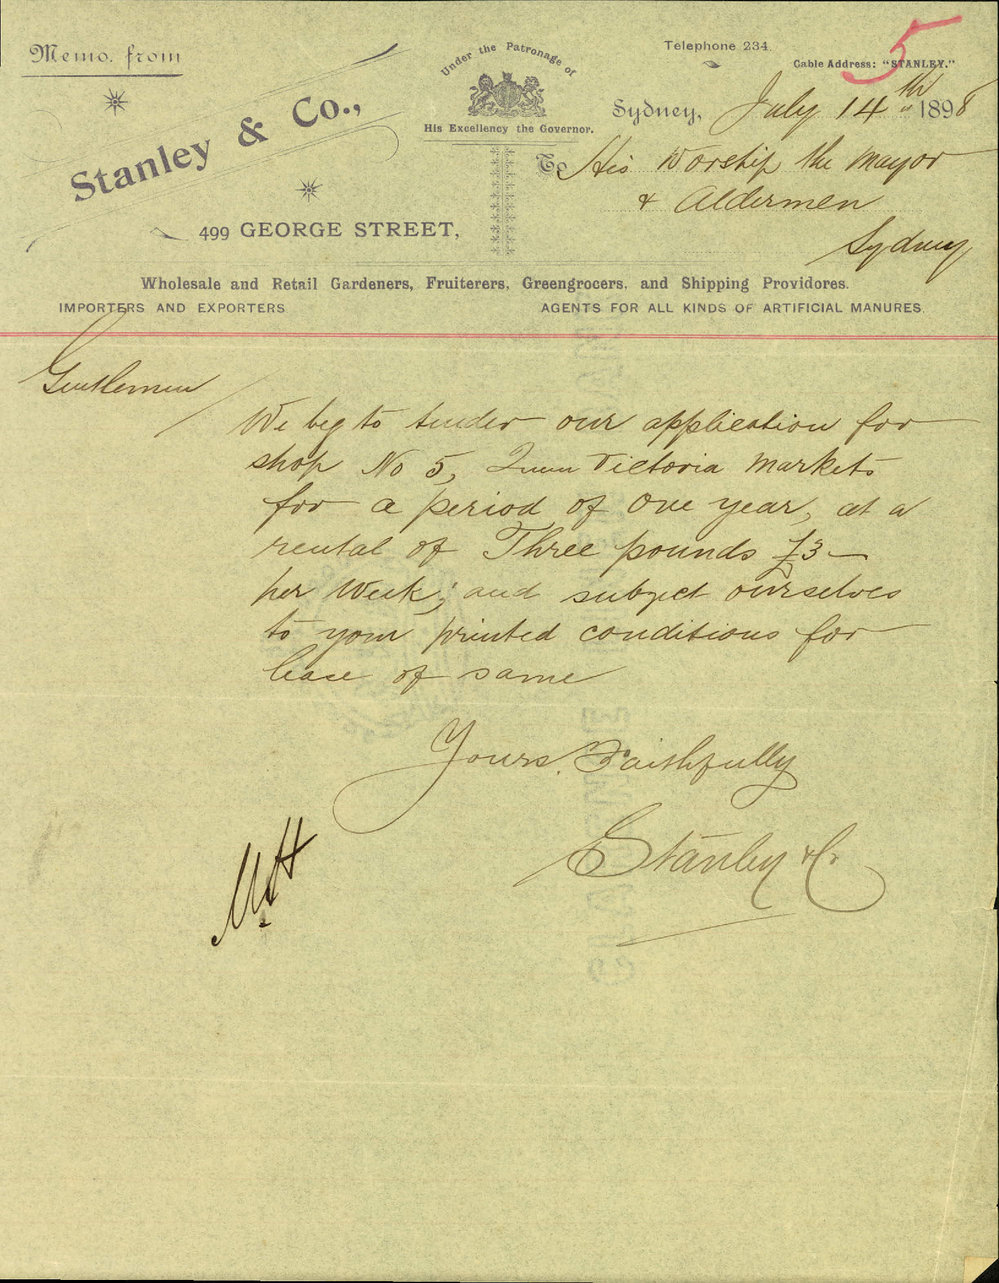 Memo. from
Stanley & Co.,
499 GEORGE STREET,
Under the Patronage of
His Excellency the Governor.
Telephone 234.
5
Cable Address: "STANLEY."
Sydney, July 14th 1898
To His Worship the Mayor
& Aldermen
Sydney
Wholesale and Retail Gardeners, Fruiterers, Greengrocers, and Shipping Providores.
IMPORTERS AND EXPORTERS
AGENTS FOR ALL KINDS OF ARTIFICIAL MANURES.
Gentlemen
We beg to tender our application for
shop No 5, Queen Victoria Markets
for a period of One year, at a
rental of Three pounds £3—
per Week; and subject ourselves
to your printed conditions for
lease of same
Yours Faithfully
Stanley & Co